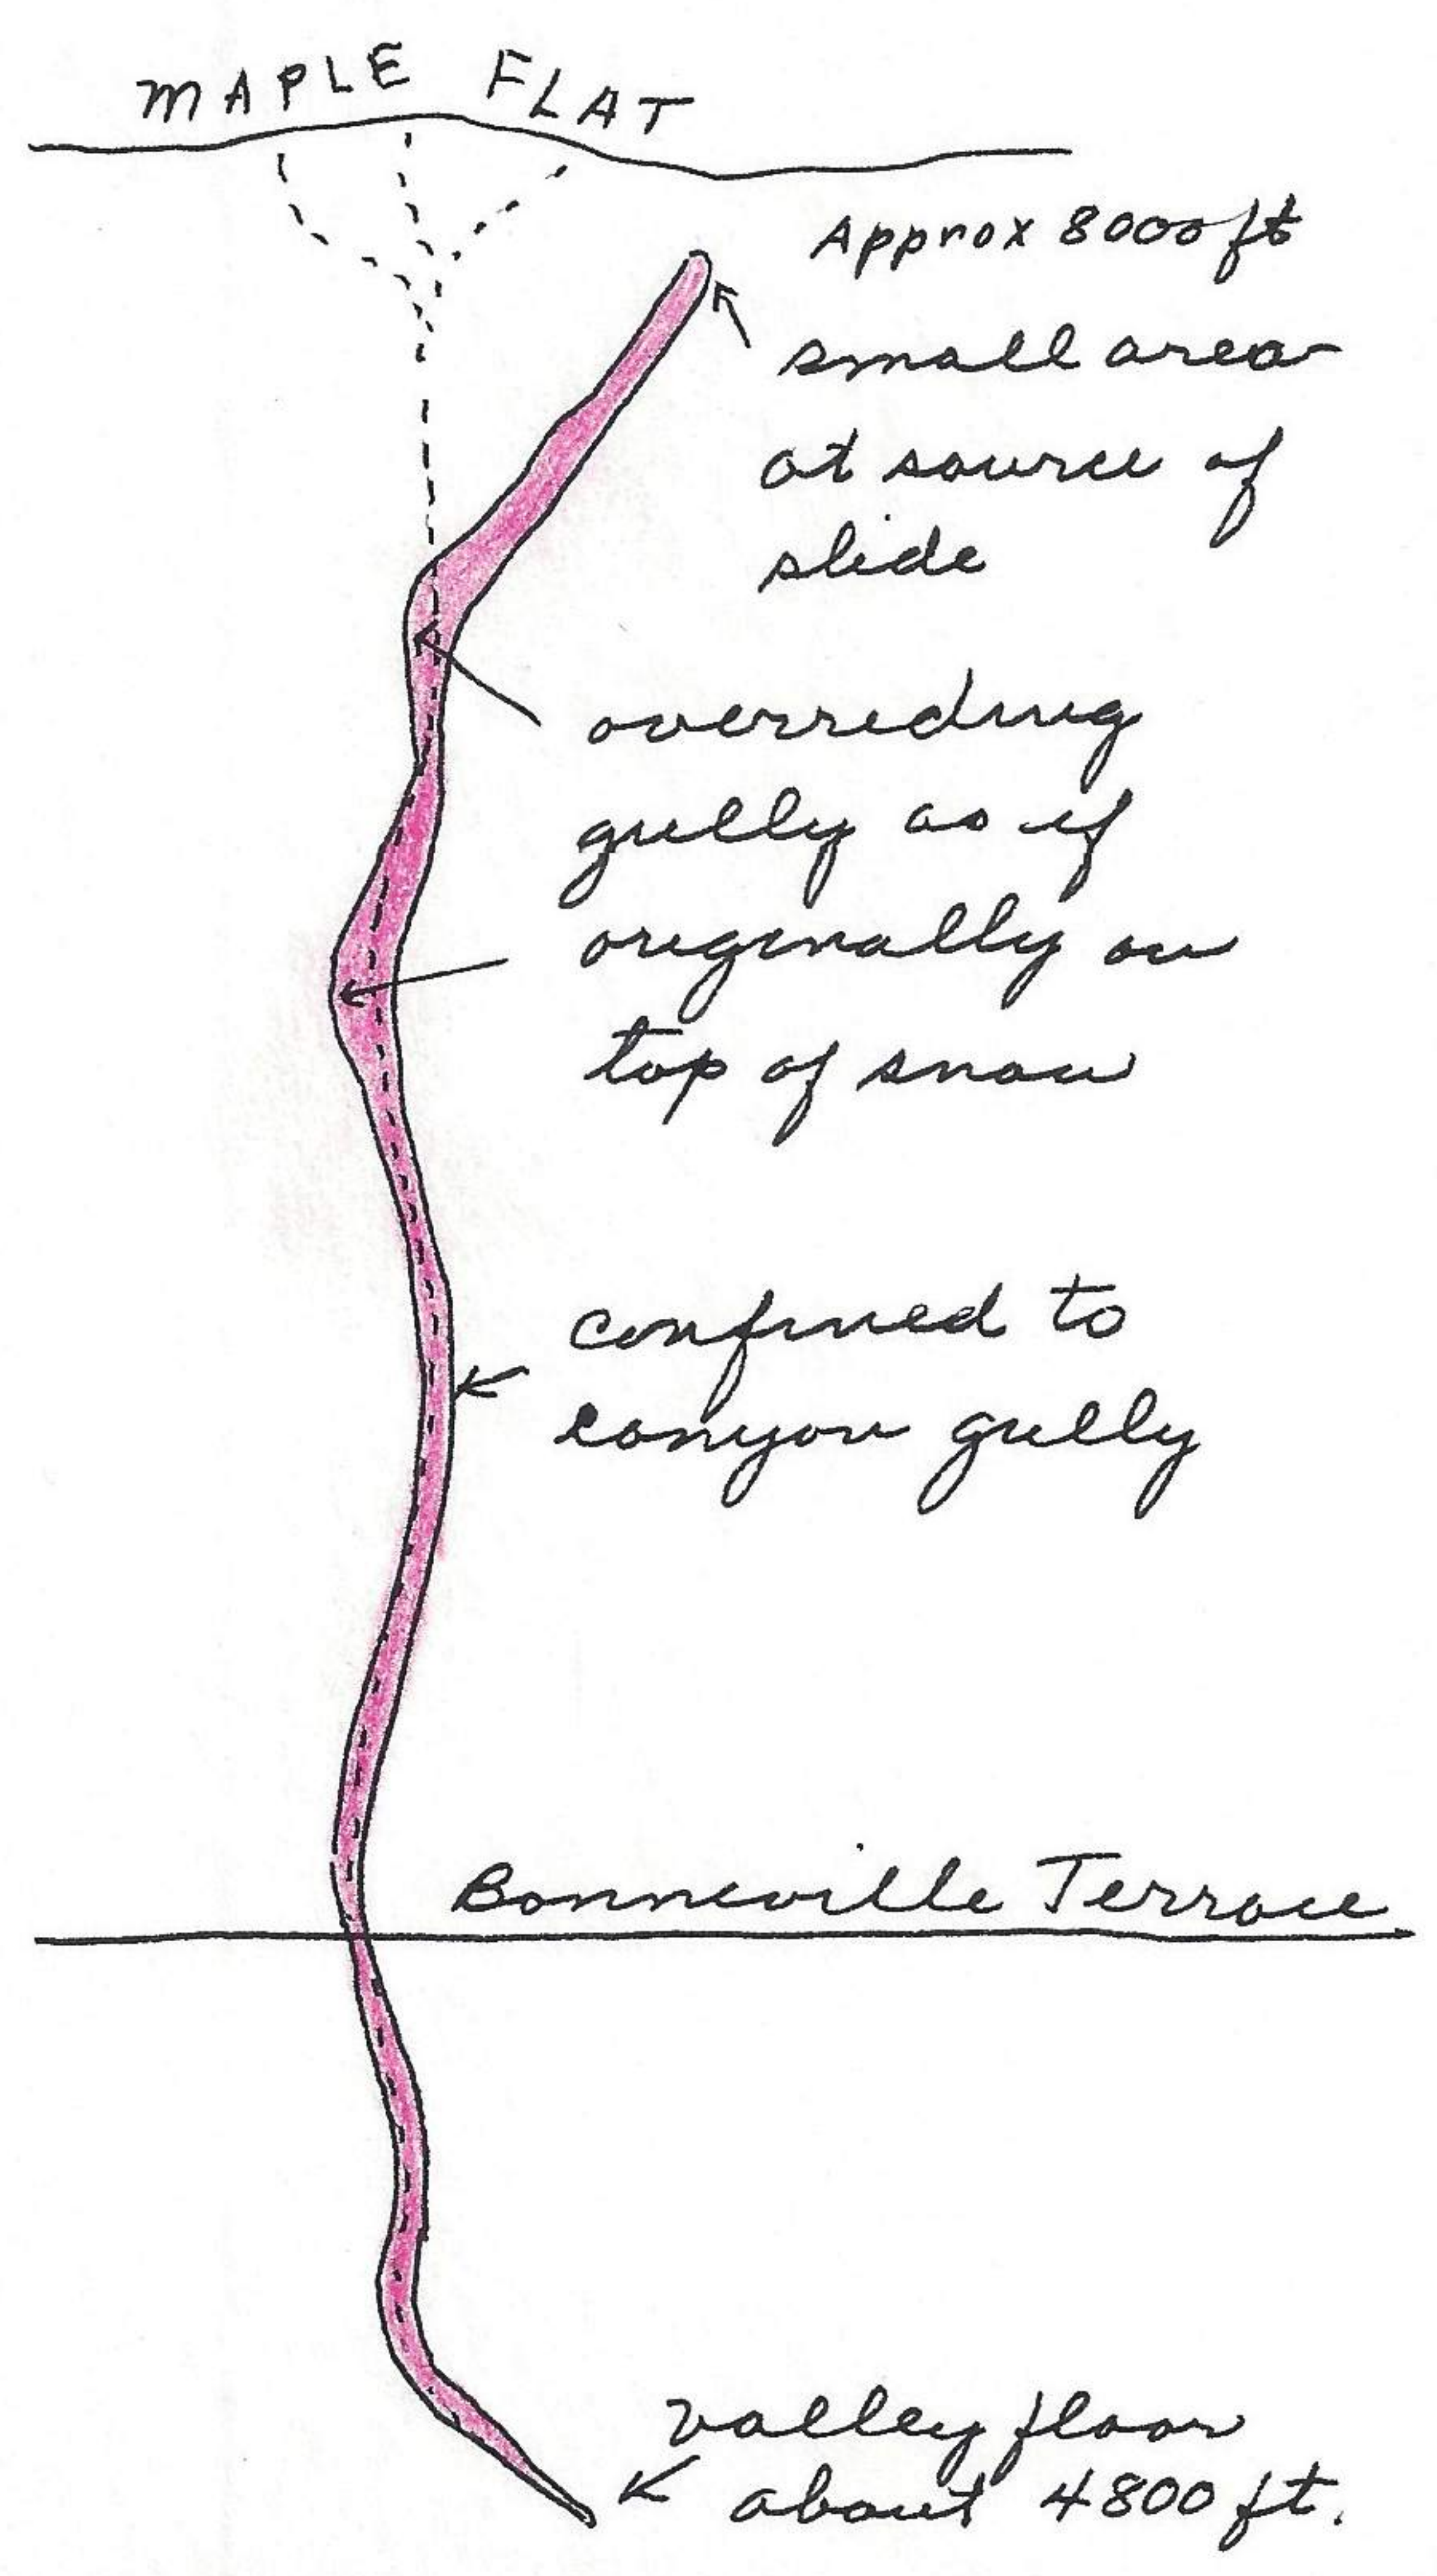 MAPLE FLAT
Approx 8000 ft
small area
at source of
slide
overriding
gully as if
originally on
top of snow
confined to
canyon gully
Bonneville Terrace
valley floor
about 4800 ft.